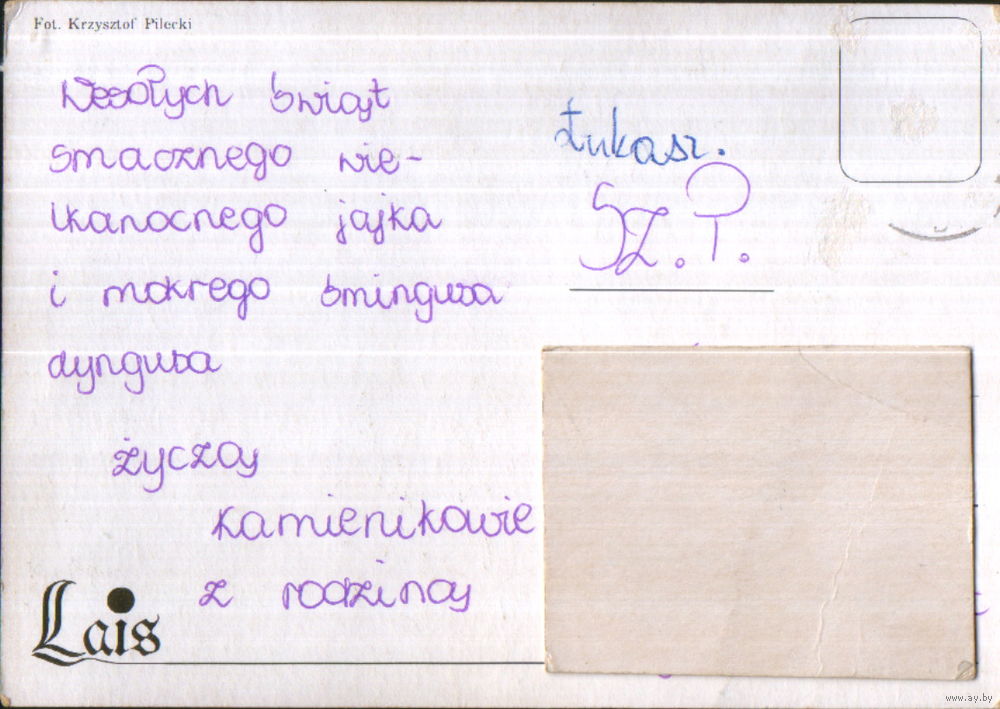 Fot. Krzysztof Pilecki
Wesołych Świąt
smacznego wie-
lkanocnego jajka
i mokrego śmingusa
dyngusa
życzą
Kamienikowie
z rodziną
Łukasz.
Sz. P.
Lais
www.ay.by